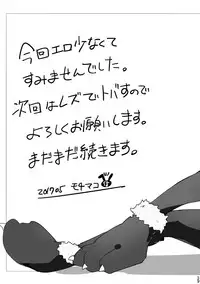 今回エロ少なくて
すみませんでした。
次回はレズでトバすので
よろしくお願いします。
まだまだ続きます。
201705 モチマコ